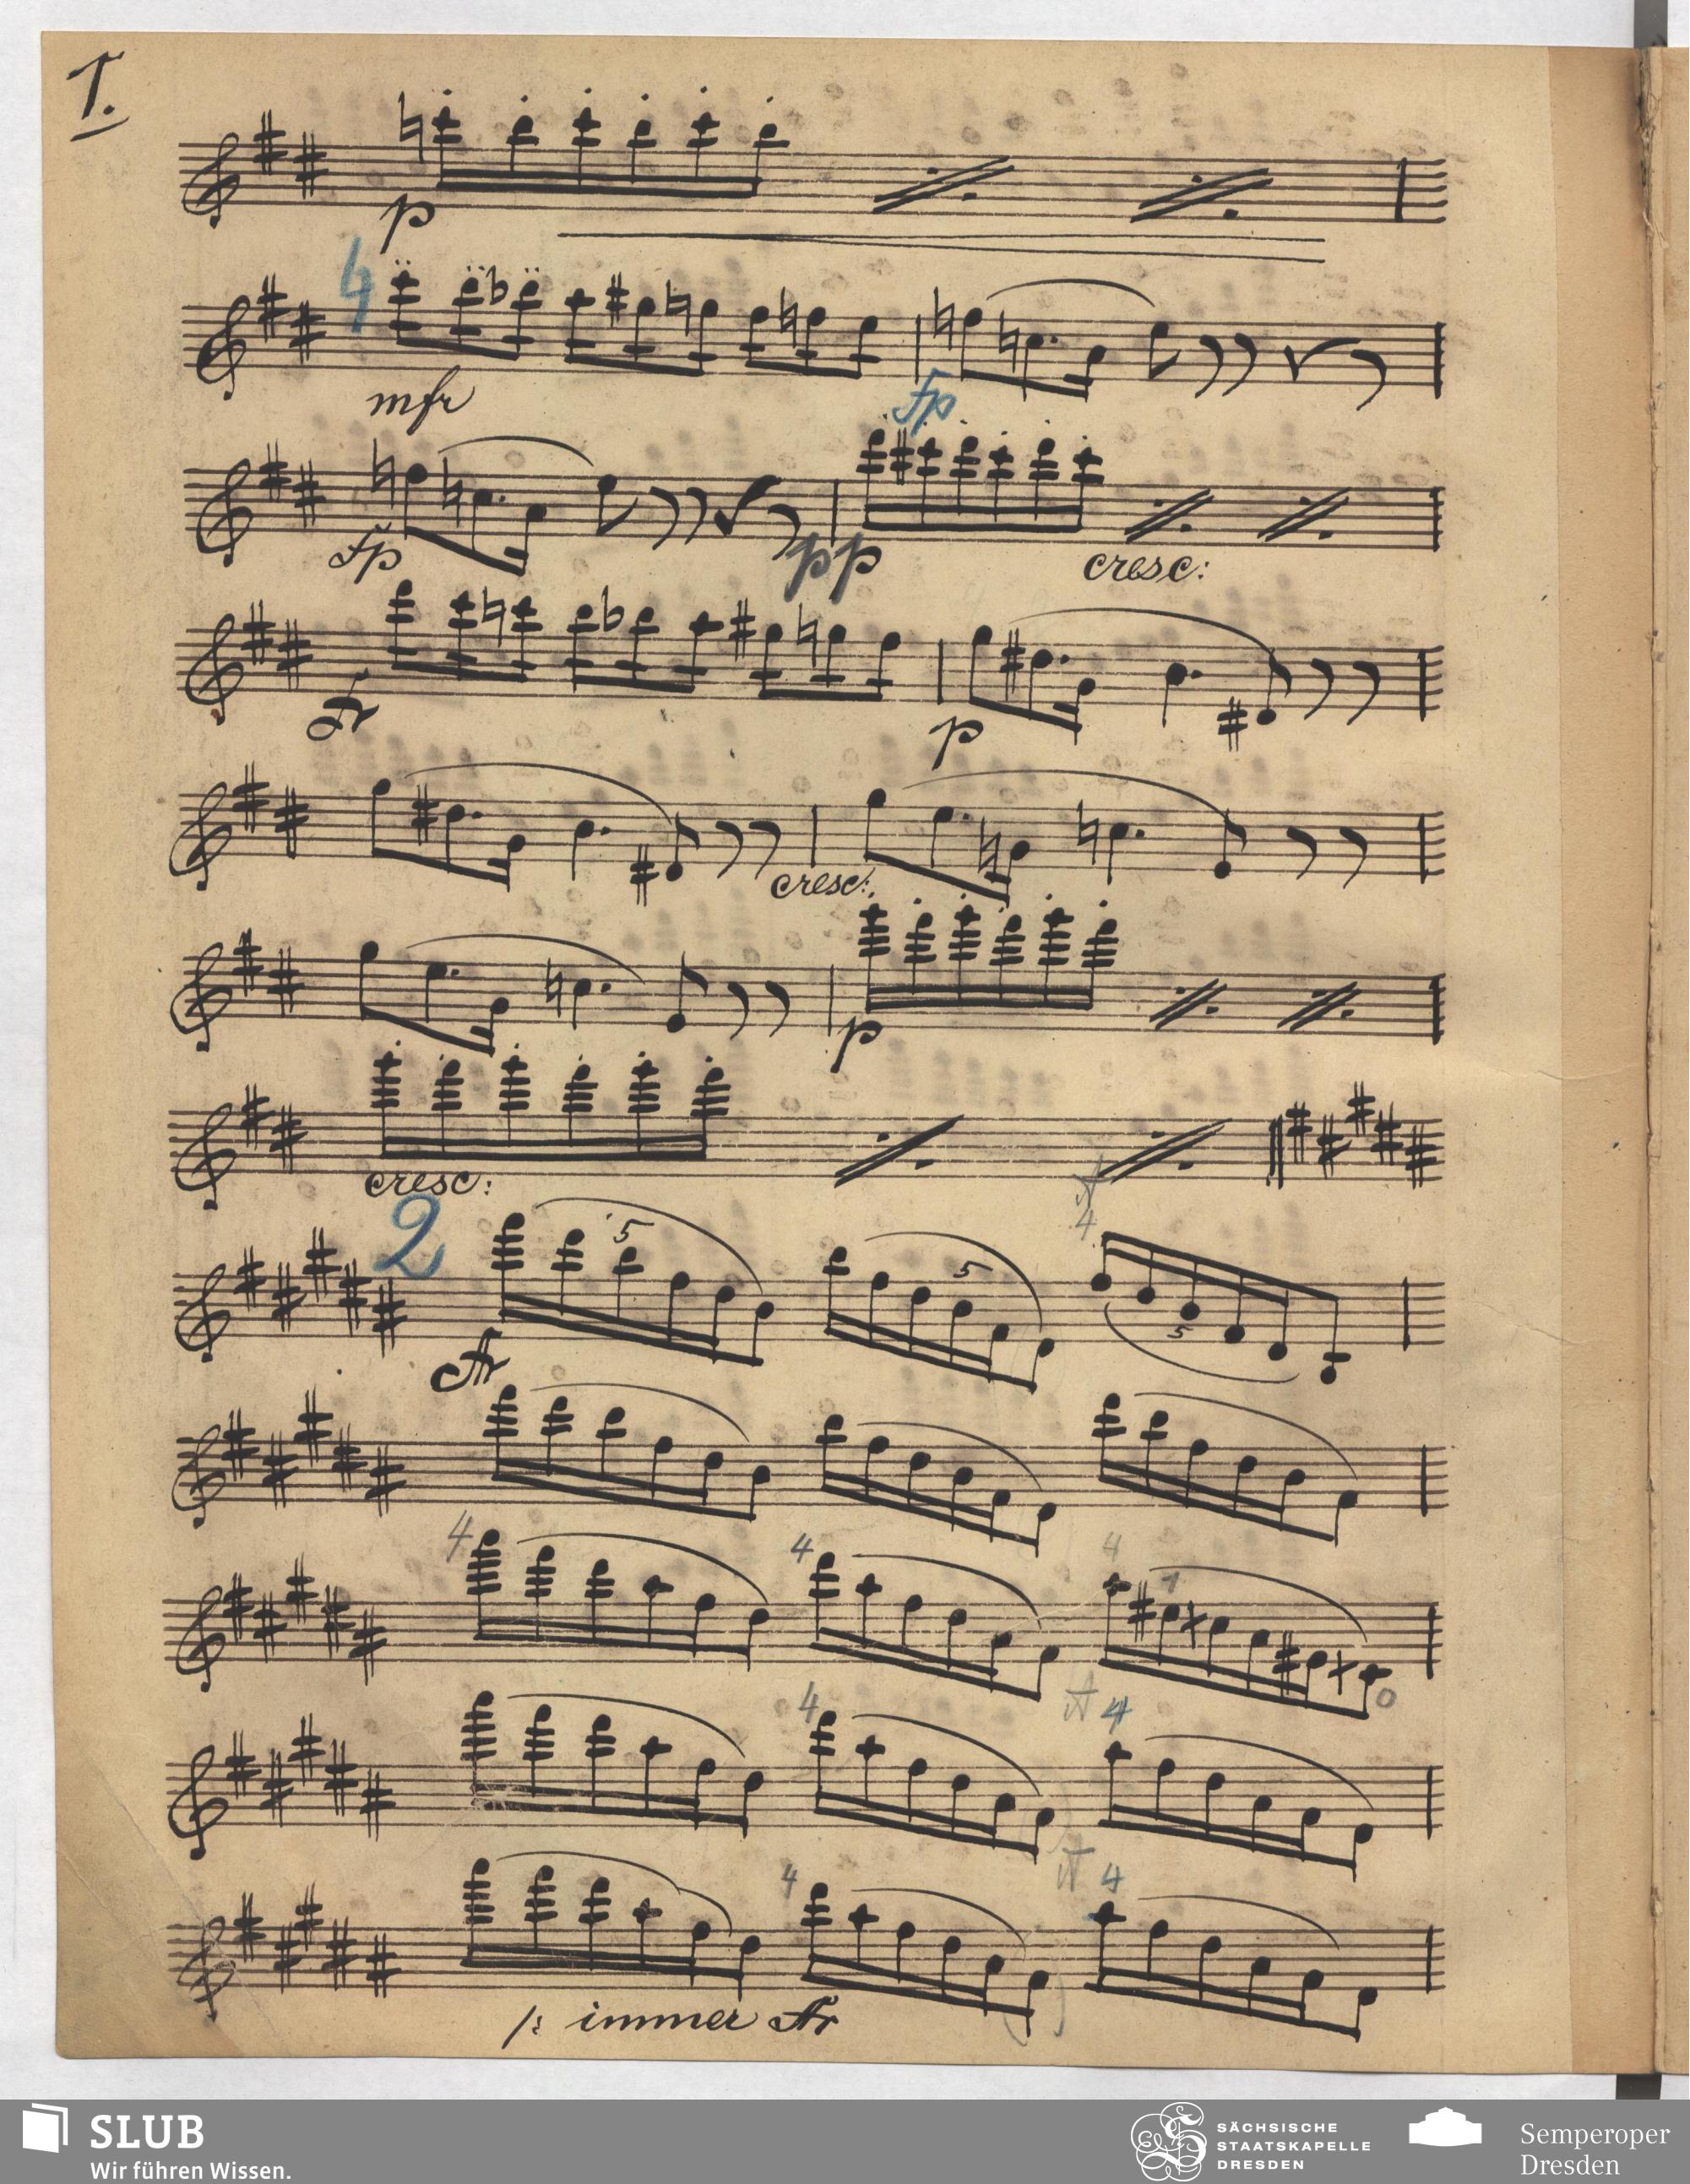 1.
p
4
mfr
fp
fp
pp
cresc:
p
cresc:
p
cresc:
2
5
5
4
5
4
4
4
1
0
4
4
4
4
/: immer
SLUB
Wir führen Wissen.
SÄCHSISCHE
STAATSKAPELLE
DRESDEN
Semperoper
Dresden